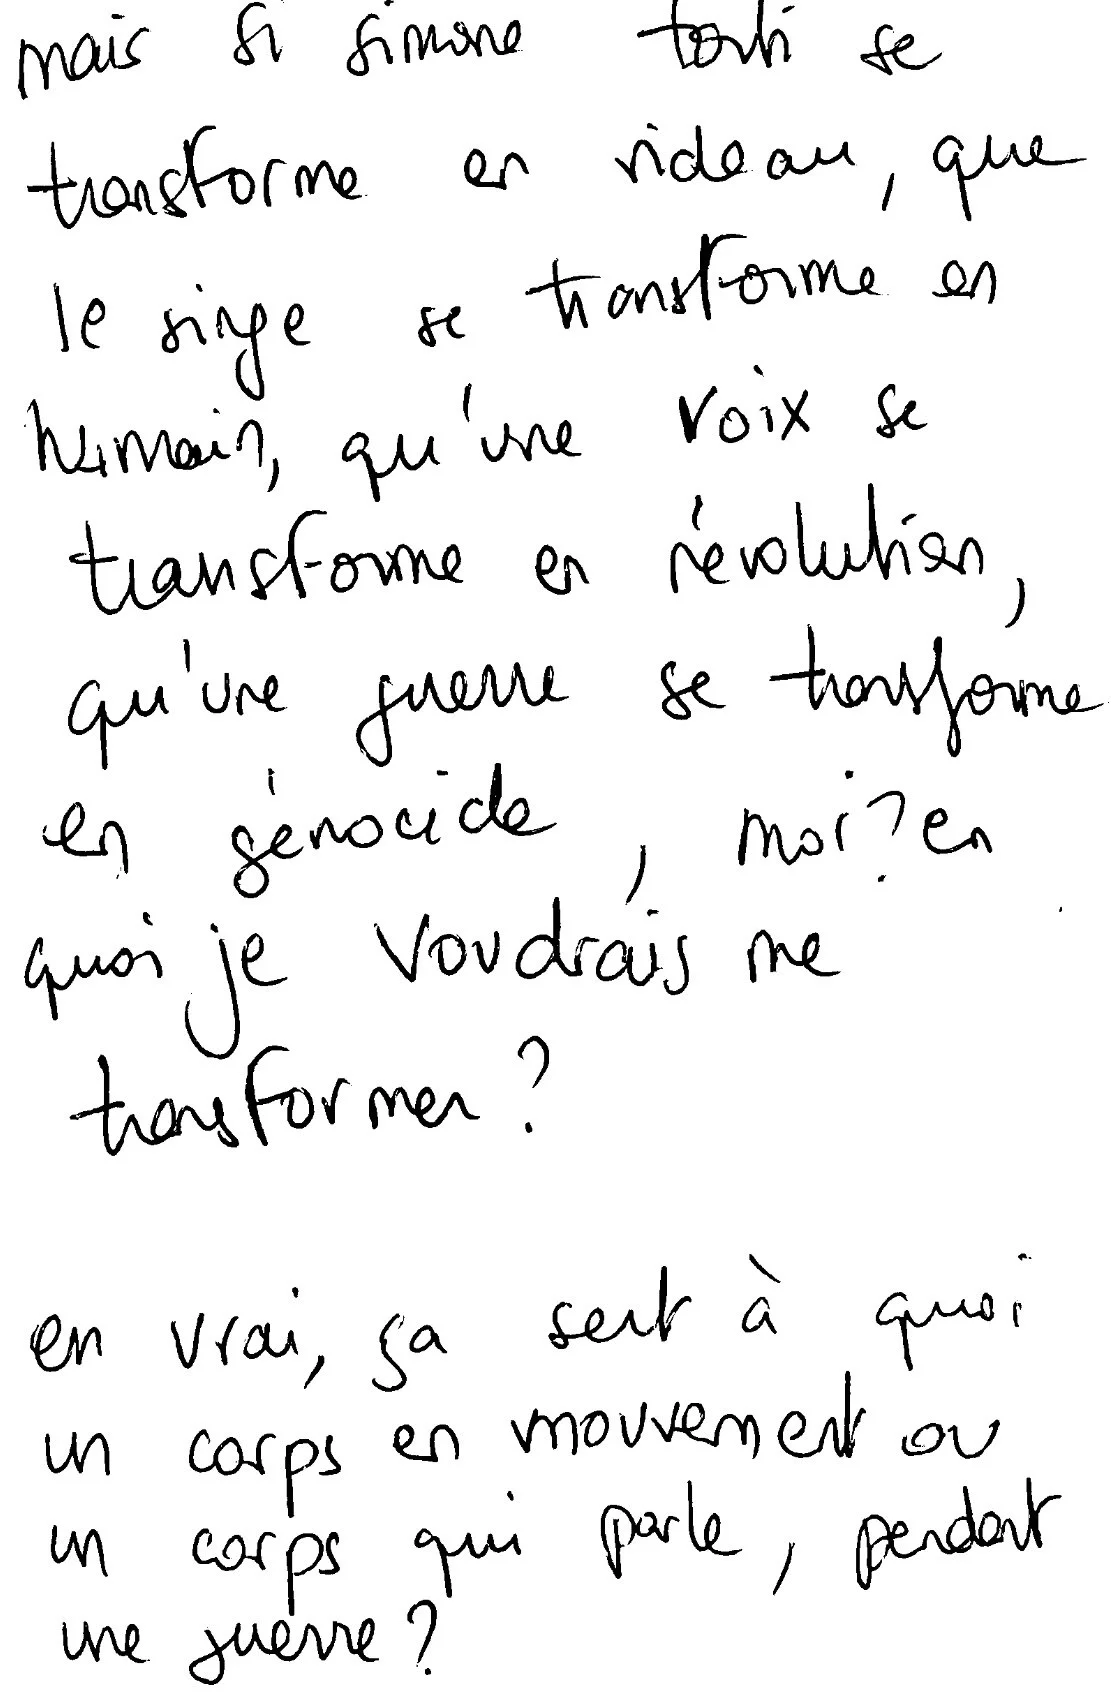 mais si simone forti se
transforme en rideau, que
le singe se transforme en
humain, qu'une voix se
transforme en révolution,
qu'une guerre se transforme
en génocide, moi? en
quoi je voudrais me
transformer?
en vrai, ça sert à quoi
un corps en mouvement ou
un corps qui parle, pendant
une guerre?